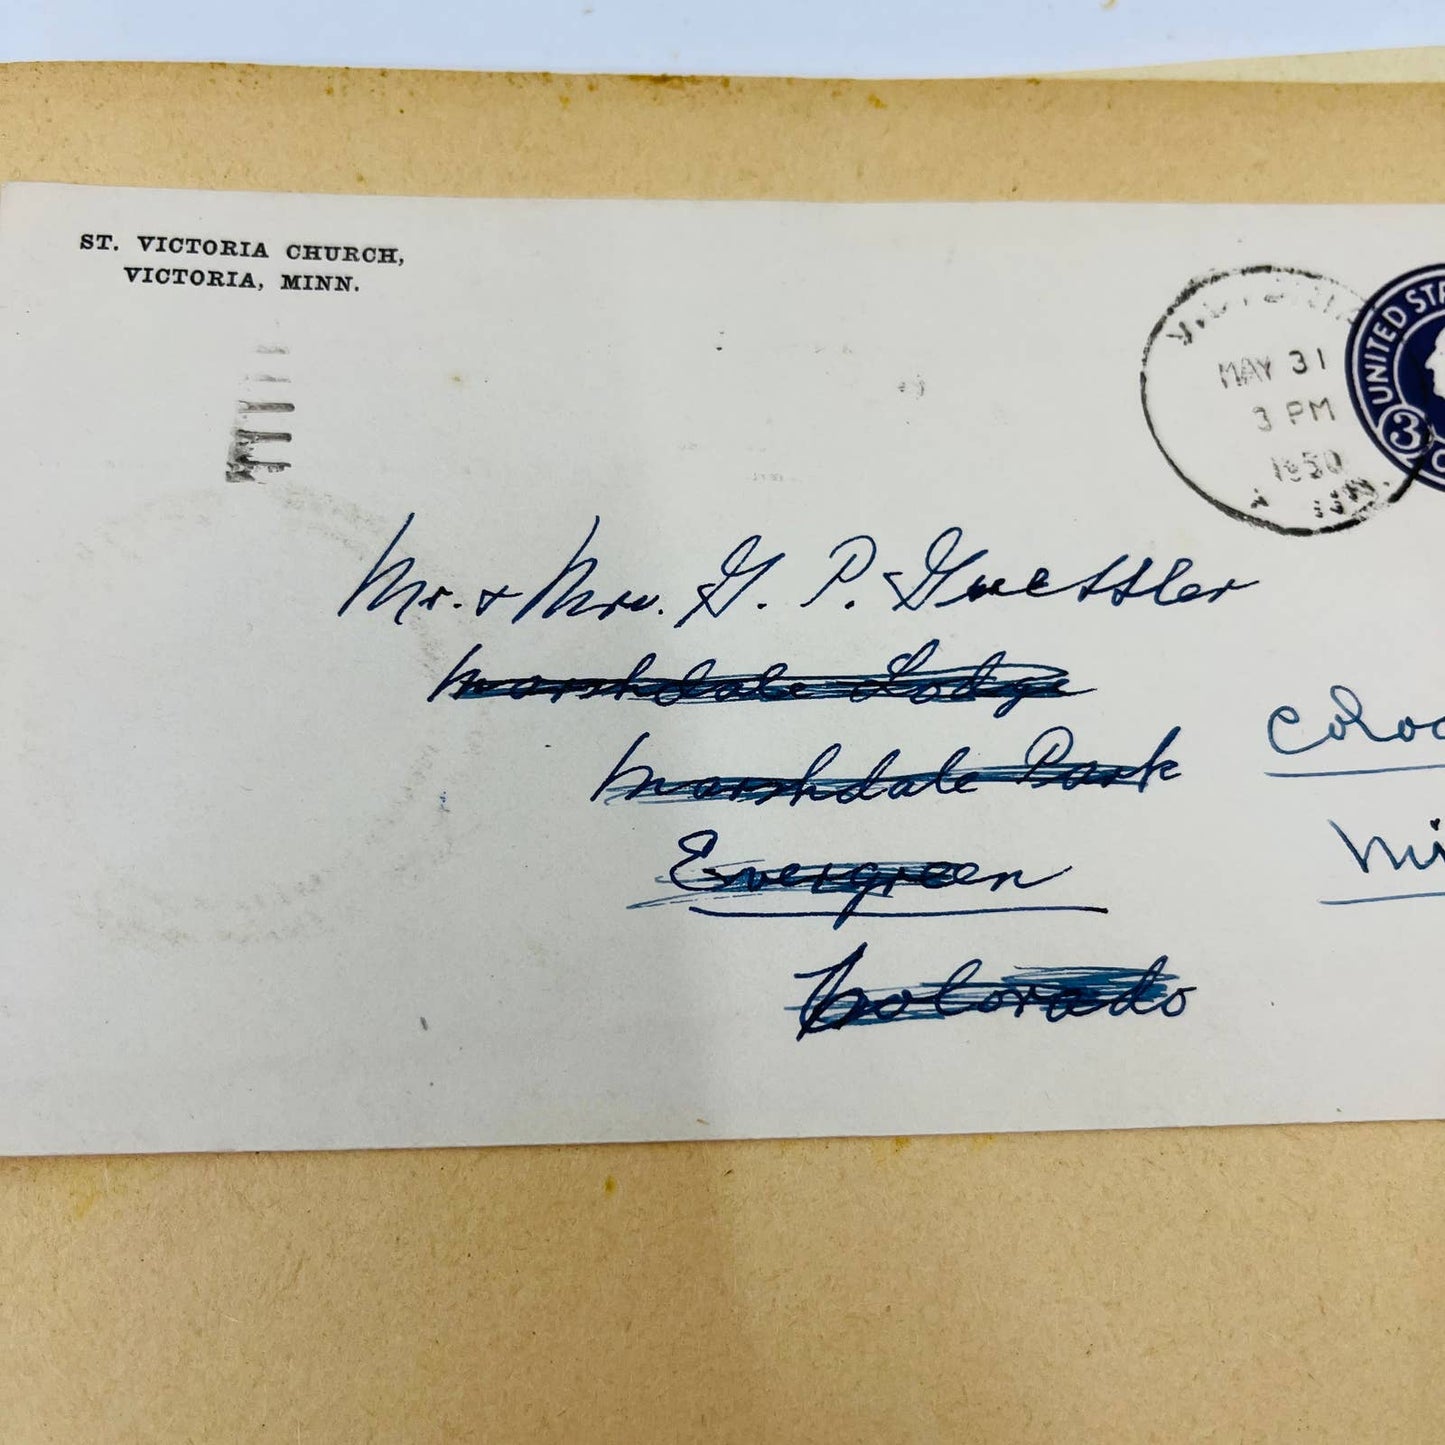 ST. VICTORIA CHURCH,
VICTORIA, MINN.
MAY 31
3 PM
1950
UNITED STA
3
Mr. & Mrs. G. P.
Marshdale Lodge
Marshdale Park
Evergreen
Colorado